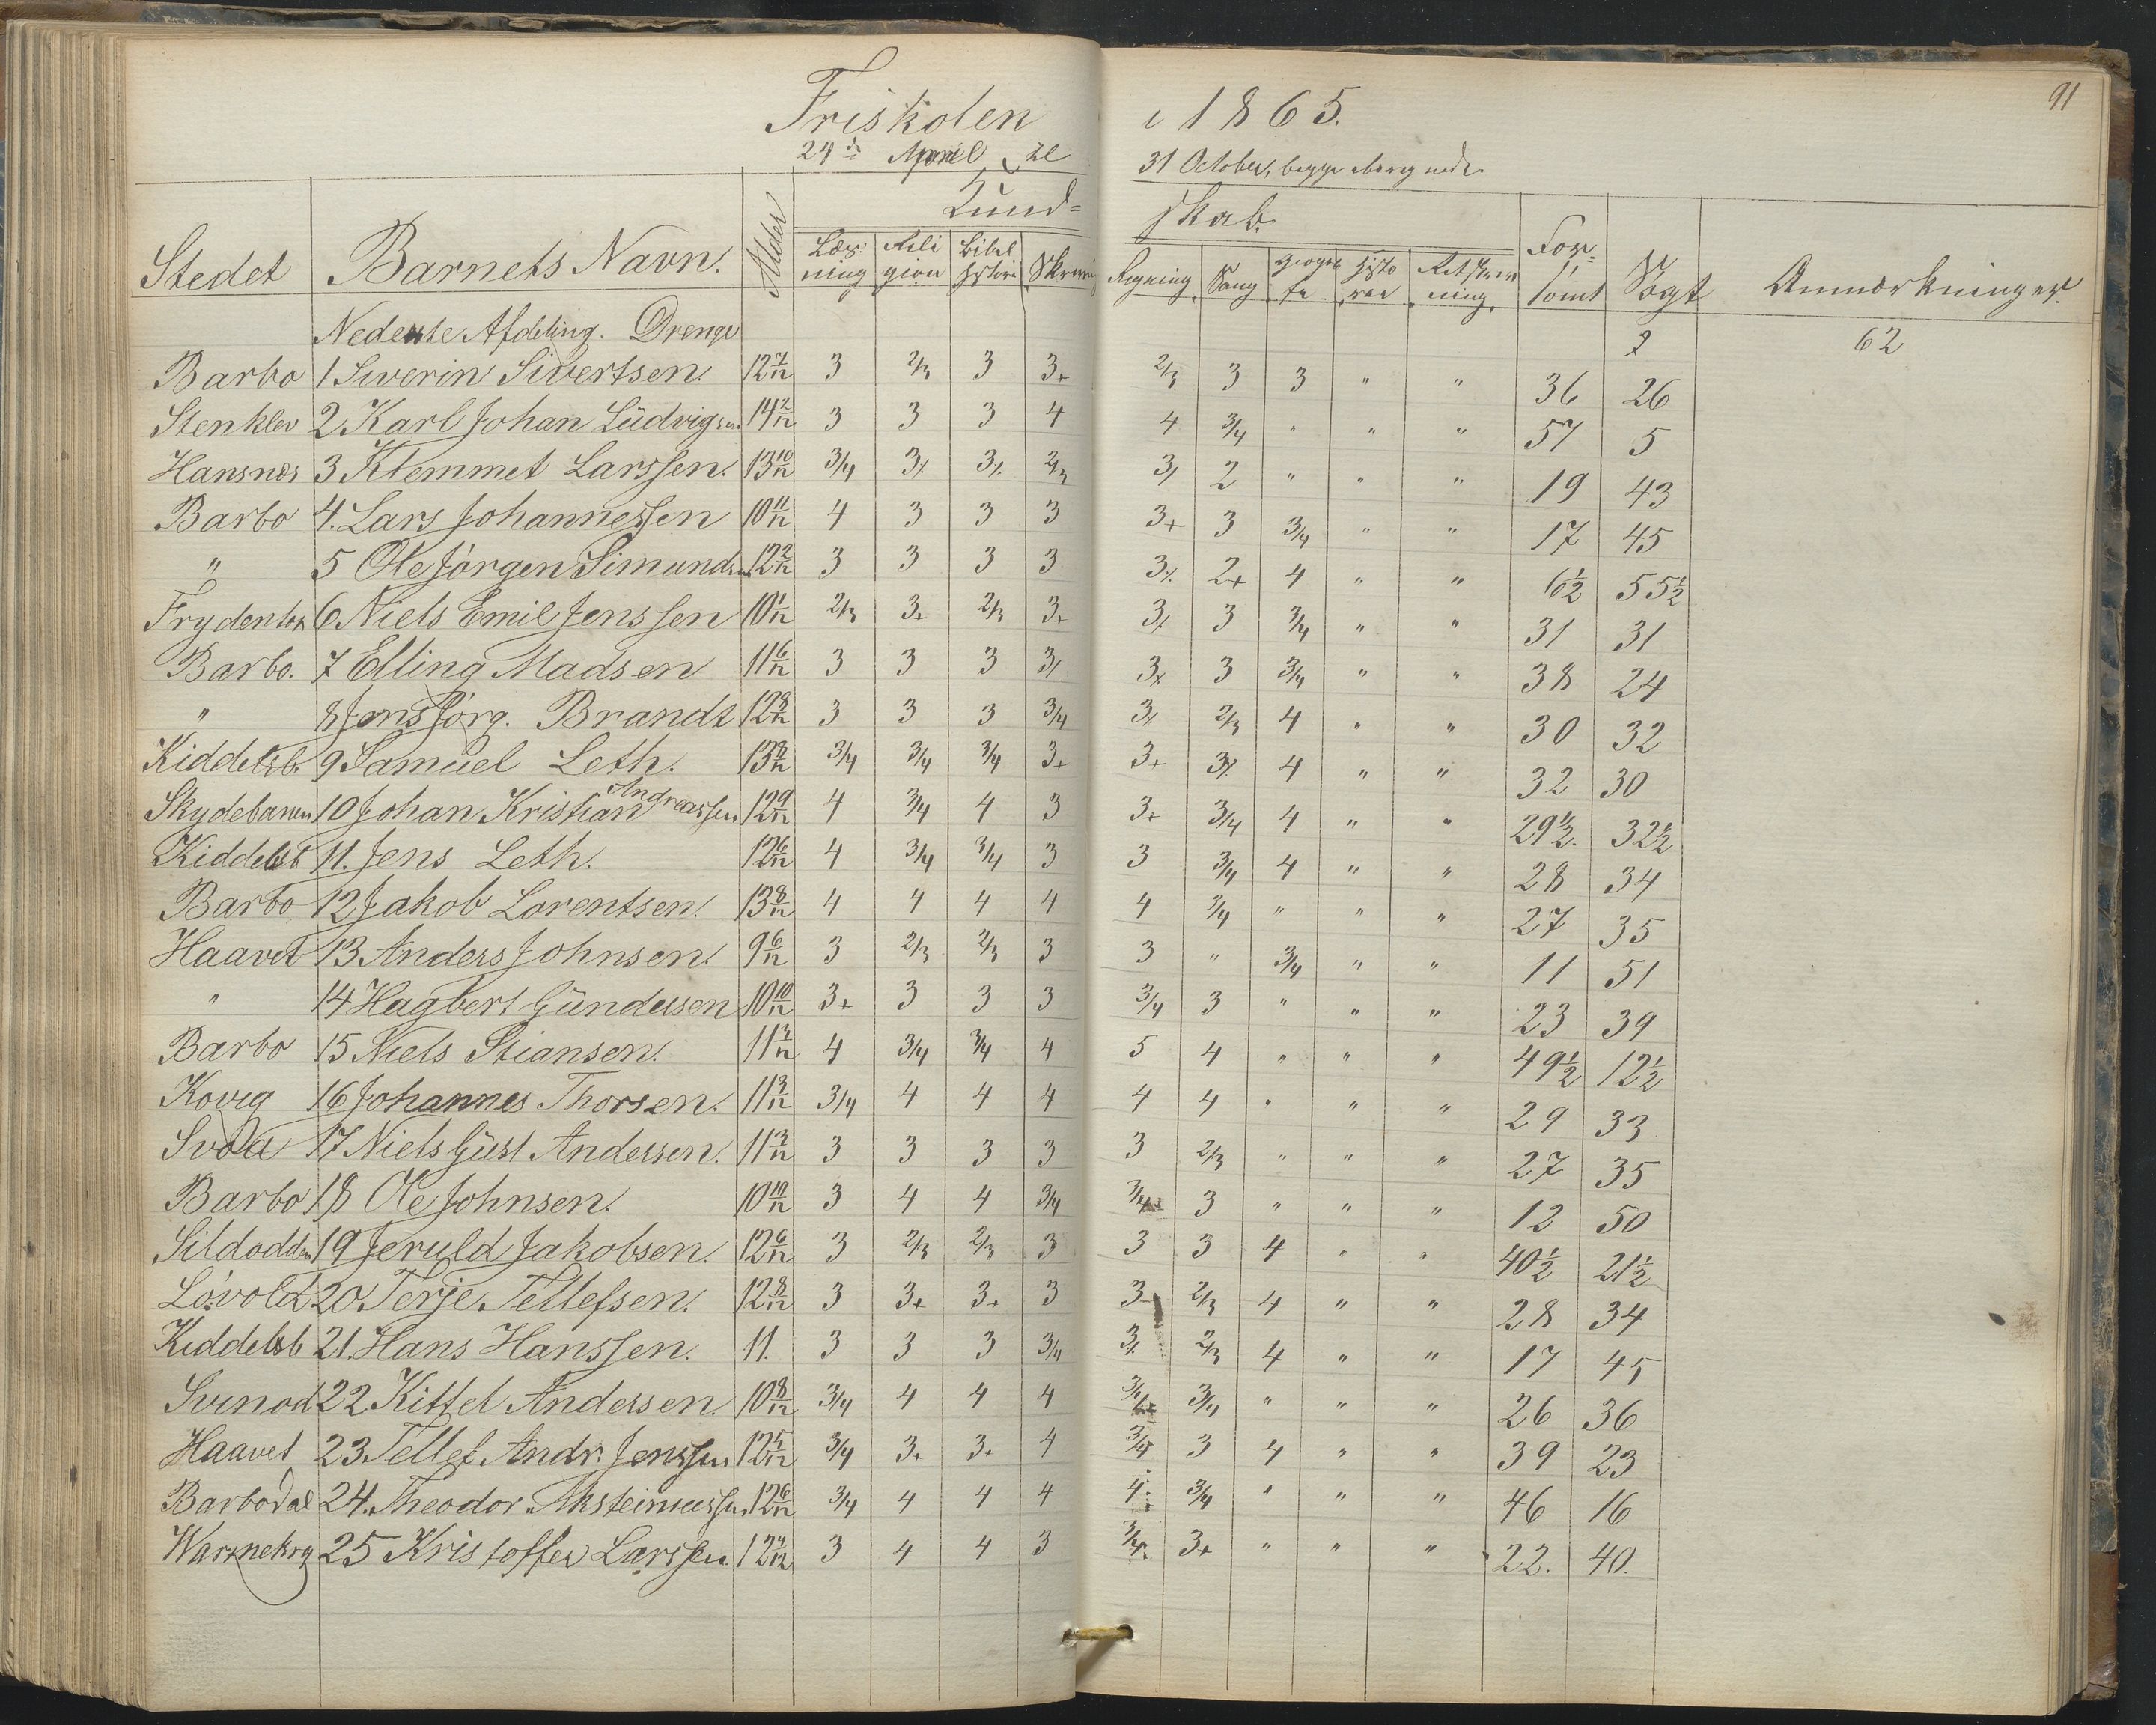 91
Friskolen i 1865.
24de April til 31 October, begge
Kund- skab.
Stedet Barnets Navn. Alder Læs- ning Reli gion Bibel historie Skrivning Regning Sang Geogra fi Histo rie Retskriv ning For- sömt Sögt Anmærkninger.
Nederste Afdeling. Drenge 62
Barbo 1 Siverin Sivertsen. 12 7/12 3 2/3 3 3+ 2/3 3 3 " " 36 26
Stenklev 2 Karl Johan Lüdvigsen. 14 2/12 3 3 3 4 4 3/4 " " " 57 5
Hansnæs 3 Klemmet Larssen. 13 10/12 3/4 3% 3% 2/3 3% 2 " " " 19 43
Barbo 4. Lars Johannessen 10 11/12 4 3 3 3 3+ 3 3/4 " " 17 45
" 5 Ole Jörgen Simundsen 12 2/12 3 3 3 3 3% 2+ 4 " " 6½ 55½
6 Niels Emil Jenssen 10 1/12 2/3 3+ 2/3 3+ 3% 3 3/4 " " 31 31
Barbo. 7 Elling Madsen 11 6/12 3 3 3 3% 3% 3 3/4 " " 38 24
" 8 Jens Jörg. Brandt 12 8/12 3 3 3 3/4 3% 2/3 4 " " 30 32
Kiddelsb. 9 Samuel Leth. 13 8/12 3/4 3/4 3/4 3+ 3+ 3% 4 " " 32 30
Skydebanen 10 Johan Kristian Andreassen 12 9/12 4 3/4 4 3 3+ 3/4 4 " " 29½. 32½
Kiddelsb 11. Jens Leth. 12 6/12 4 3/4 3/4 3 3 3/4 4 " " 28 34
Barbo 12 Jakob Lorentsen. 13 8/12 4 4 4 4 4 3/4 " " " 27 35
Haavet 13 Anders Johnsen. 9 6/12 3 2/3 2/3 3 3 " 3/4 " " 11 51
" 14 Hagbert Gündersen 10 10/12 3+ 3 3 3 3/4 3 " " " 23 39
Barbo 15 Niels Stiansen. 11 3/12 4 3/4 3/4 4 5 4 " " " 49½ 12½
Kovig 16 Johannes Thorsen. 11 3/12 3/4 4 4 4 4 4 " " " 29 33
Svoda 17 Niels Güst Andersen. 11 3/12 3 3 3 3 3 2/3 " " " 27 35
Barbo 18 Ole Johnsen. 10 10/12 3 4 4 3/4 3/4 3 " " " 12 50
Sildodden 19 Jeruld Jakobsen. 12 6/12 3 2/3 2/3 3 3 3 4 " " 40½ 21½
Lövold 20 Terje Tellefsen. 12 8/12 3 3+ 3+ 3 3 2/3 4 " " 28 34
Kiddelsb 21. Hans Hanssen. 11. 3 3 3 3/4 3% 2/3 4 " " 17 45
Svinod 22 Kittel Andersen. 10 8/12 3/4 4 4 4 3/4 3/4 " " " 26 36
Haavet 23. Tellef Andr. Jenssen 12 5/12 3/4 3+ 3+ 4 3/4 3 4 " " 39 23
Barbodal 24. Theodor 12 6/12 3/4 4 4 4 4 3/4 " " " 46 16
25 Kristoffer Larssen. 12 3 4 4 3 3/4 3+ " " " 22. 40.